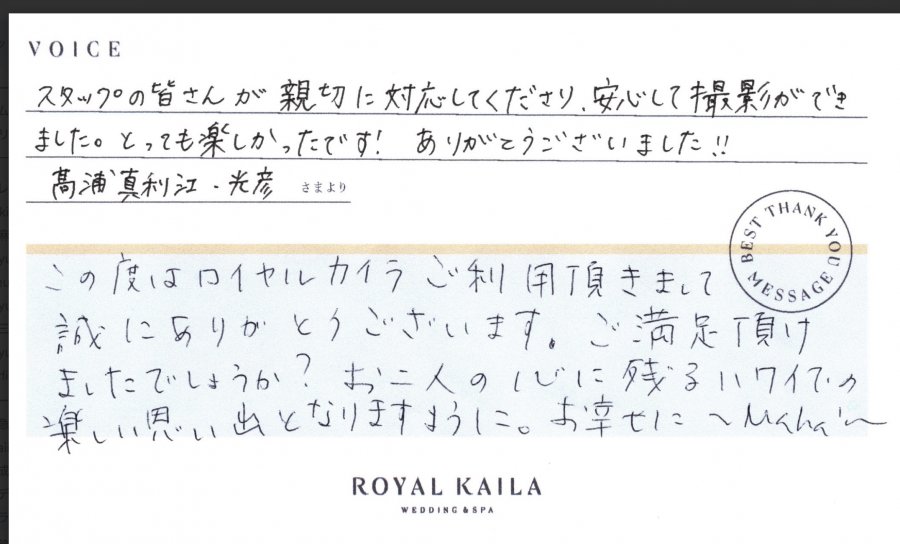 VOICE
スタッフの皆さんが 親切に対応してくださり、安心して撮影ができ
ました。とっても楽しかったです! ありがとうございました!!
髙浦真利江・光彦 さまより
BEST THANK YOU MESSAGE
この度はロイヤルカイラ ご利用頂きまして
誠にありがとうございます。ご満足頂け
ましたでしょうか? お二人の心に残るハワイでの
楽しい思い出となりますように。お幸せに
ROYAL KAILA
WEDDING & SPA